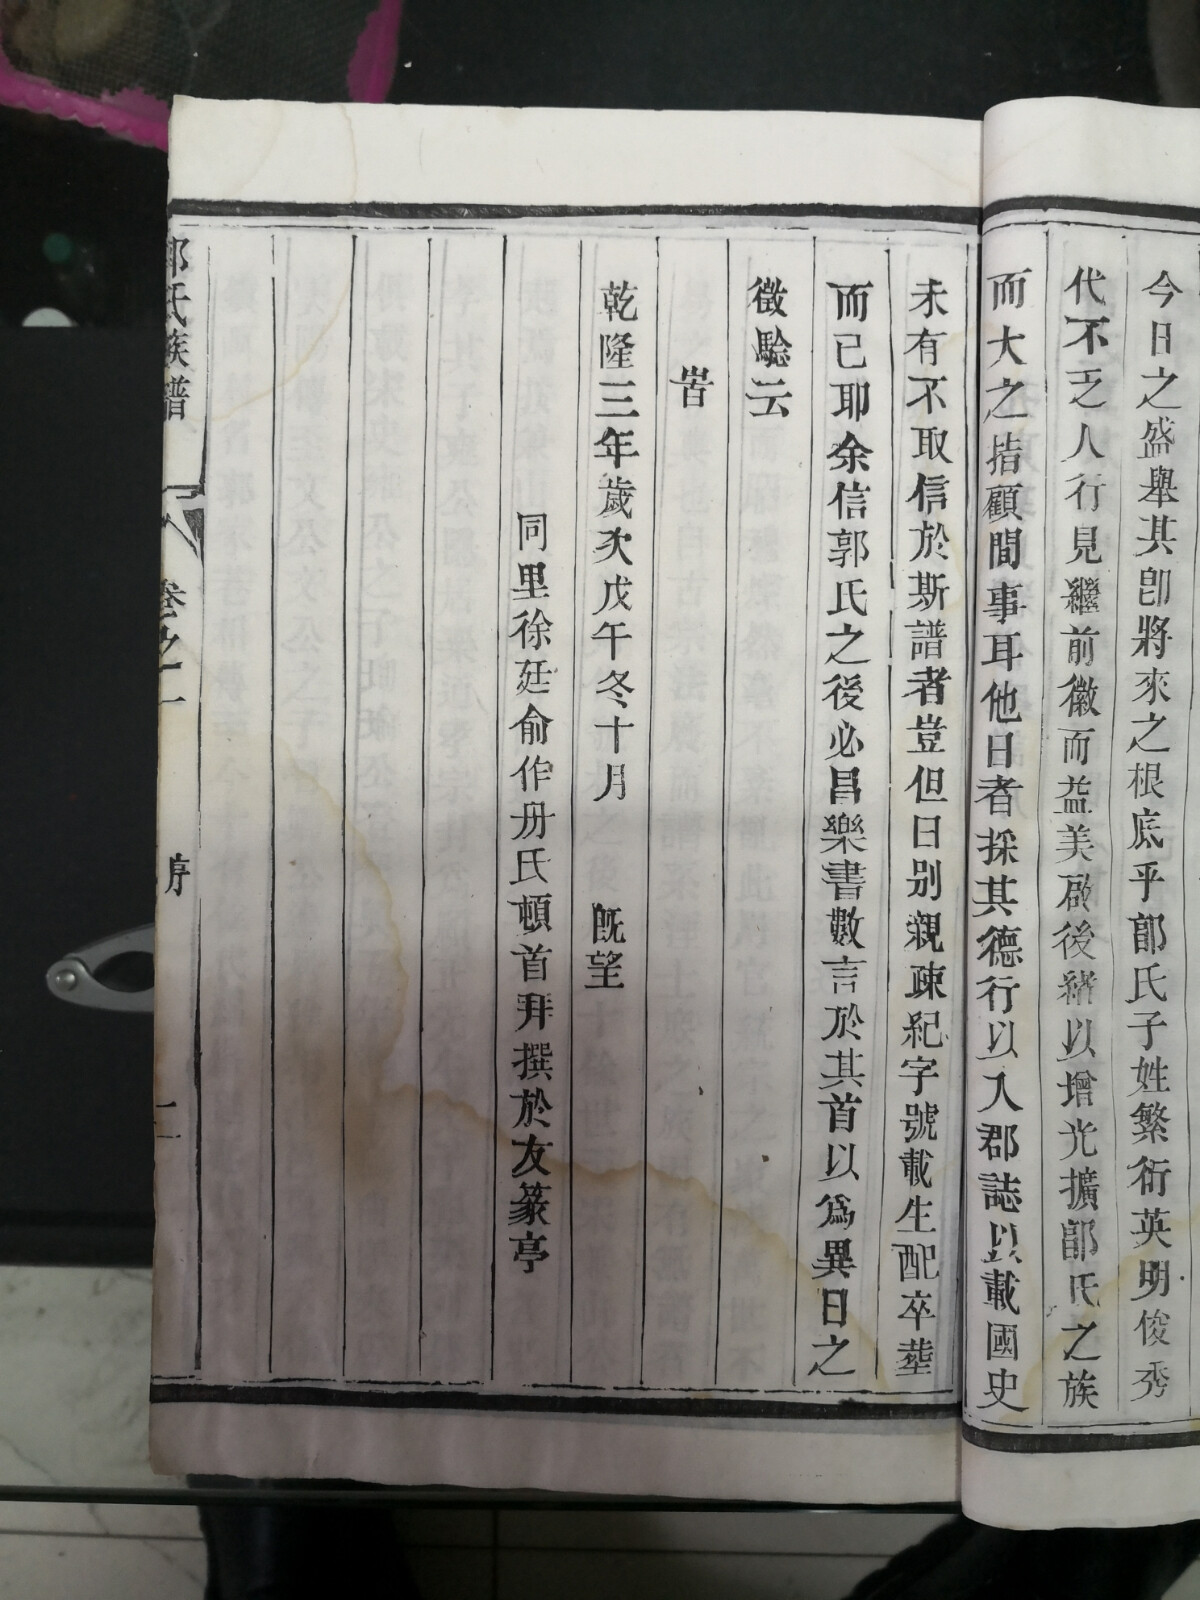 今日之盛舉其卽將來之根底乎郭氏子姓繁衍英明俊秀
代不乏人行見繼前徽而益美啟後緒以增光擴郭氏之族
而大之指顧間事耳他日者採其德行以入郡誌以載國史
未有不取信於斯譜者豈但曰别親疎紀字號載生配卒塟
而已耶余信郭氏之後必昌樂書數言於其首以爲異日之
徵騐云
旹
乾隆三年歲次戊午冬十月 旣望
同里徐廷俞作冊氏頓首拜撰於友篆亭
氏族譜 卷之一 序 二